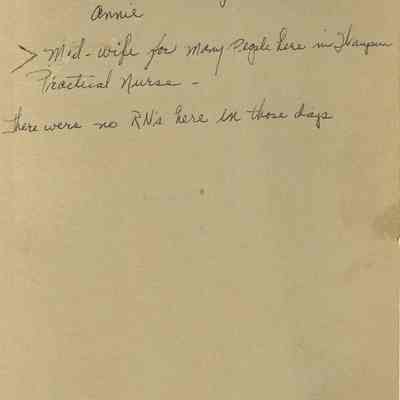 Annie
> Mid-wife for many people here in Thompson
Practical Nurse -
There were no RN's here in those days